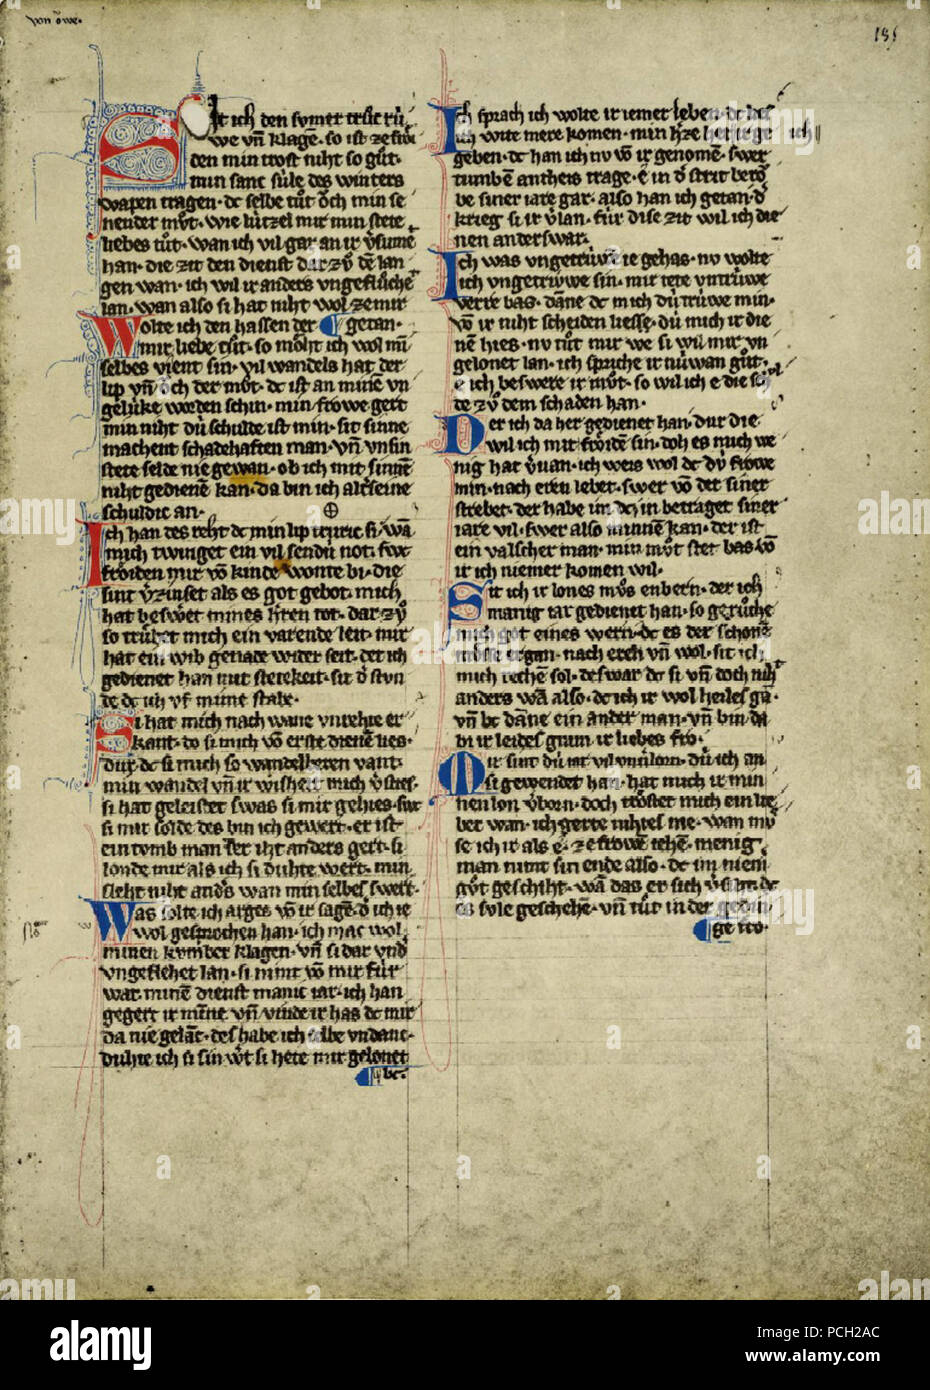 von owe.
Sit ich den sumer truͤg rú
we vn̄ klage. so ist ze froͤi
den min trost niht so guͦt.
min sanc súle des winters
wapen tragen. dc selbe tuͦt oͮch min se
nender muͦt. wie lútzel mir min stete
liebes tuͦt. wan ich vil gar an ir v̓sume
han. die zit den dienst dar zuͦ dē lan
gen wan. ich wil ir anders vngefluͦchet
lan. wan also si hat niht wol ze mir
Wolte ich den hassen der ¶ getan.
mir liebe tuͦt. so moͤht ich wol mī
selbes vient sin. vil wandels hat der
lip vn̄ oͮch der muͦt. dc ist an mine vn
gelúke worden schin. min frowe gert
min niht dú schulde ist min. sit sinne
machent schadehaften man. vn̄ vnsin
stete selde nie gewan. ob ich mit sinnē
niht gedienē kan. da bin ich alterseine
schuldic an.
Ich han des reht dc min lip truric si. wā
mich twinget ein vil sendú not. swc
froͤiden mir vō kinde wonte bi. die
sint v̓zinset als es got gebot. mich
hat beswēt mines h̓ren tot. dar zuͦ
so truͤbet mich ein varende leit. mir
hat ein wib genade wider seit. der ich
gedienet han mit stetekeit. sit d̓ stvn
de dc ich vf mime stabe
Si hat mich nach wane vnrehte er
kant. do si mich vō erste dienē lies.
dur dc si mich so wandelberen vant.
min wandel vn̄ ir wisheit mich v̓sties.
si hat geleistet swas si mir gehies. swc
si mir solde des bin ich gewert. er ist
ein tomb man der iht anders gert. si
londe mir als ich si duhte wert. min
sleht niht and̓s wan min selbes swert.
Was solte ich arges vō ir sagē. d̓ ich ie
wol gesprochen han. ich mac wol
minen kvmber klagen. vn̄ si dar vnd̓
vngeflehet lan. si nimt vō mir fúr
war minē dienst manic iar. ich han
gegert ir minne vn̄ vinde ir has. dc mir
da nie gelāc. des habe ich selbe vndanc.
duhte ich si sin w̓t si hete mir gelonet
¶ bc.
185
Ich sprach ich wolte ir iemer leben. dc lies
ich wite mere komen. min h̓ze het ir ge
geben. dc han ich nv vō ir genomē. swer
tumbē antheis trage
be siner iare gar. also han ich getan. d̓
krieg si ir v̓lan. fúr dise zit wil ich die
nen anderswar.
Ich was vngetrúwē ie gehas. nv wolte
ich vngetrúwe sin. mir tete vntrúwe
verre bas. dāne dc mich dú trúwe min.
vō ir niht scheiden liesse. dú mich ir die
nē hies. nv tuͦt mir we si wil mir vn
gelonet lan. ich spriche ir núwan guͦt.
e ich beswere ir muͦt. so wil ich e die sch
de zuͦ dem schaden han.
Der ich da her gedienet han. dur die
wil ich mit froͤidē sin. doh es mich we
nig hat v̓van. ich weis wol dc dú frowe
min. nach eren lebet. swer vō der siner
strebet. der habe im dc in betraget siner
iare vil. swer also minnē kan. der ist
ein valscher man. min muͦt stet bas vō
ir ich niemer komen wil.
Sit ich ir lones muͦs enbern. der ich
manig iar gedienet han. so geruͦche
mich got eines wern. dc es der schonē
mvͤsse ergan. nach eren vn̄ wol. sit ich
mich rechē sol. deswar dc si vn̄ doch niht
anders wā also. dc ich ir wol heiles gā
vn̄ bc dāne ein ander man. vn̄ bin da
bi ir leides gram ir liebes fro.
Mir sint dú iar vil vnv̓lorn. dú ich an
si gewendet han. hat mich ir min
nen lon v̓born. doch troͤstet mich ein lie
ber wan. ich gerte nihtes me. wan muͤ
se ich ir als e. ze frowē iehē. menig
man nimt sin ende also. dc im niem̄
guͦt geschiht. wā das er sich v̓siht. dc
es súle geschehē. vn̄ tuͦt in der gedin
¶ ge fro.
alamy
Image ID: PCH2AC
www.alamy.com